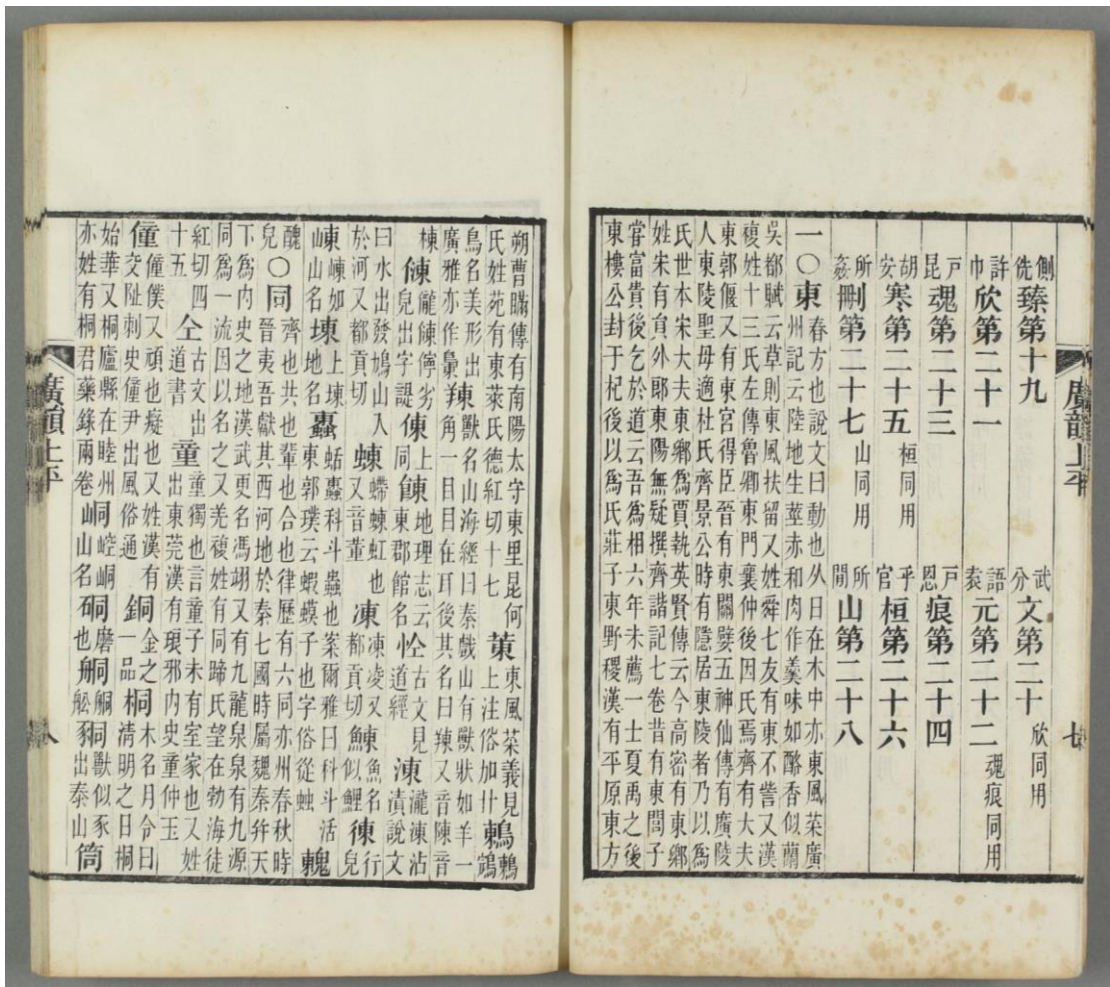 側侁臻第十九 武分文第二十 欣同用
許巾欣第二十一 語袁元第二十二 魂痕同用
戶昆魂第二十三 戶恩痕第二十四
胡安寒第二十五 桓同用 乎官桓第二十六
所姦刪第二十七 山同用 所閒山第二十八
一〇東 春方也說文曰動也从日在木中亦東風菜廣
州記云陸地生莖赤和肉作羹味如酪香似蘭
吳都賦云草則東風扶留又姓舜七友有東不訾又漢
複姓十三氏左傳魯卿東門襄仲後因氏焉齊有大夫
東郭偃又有東宮得臣晉有東關嬖五神仙傳有廣陵
人東陵聖母適杜氏齊景公時有隱居東陵者乃以爲
氏世本宋大夫東鄉爲賈執英賢傳云今高密有東鄉
姓宋有員外郎東陽無疑撰齊諧記七卷昔有東閭子
嘗富貴後乞於道云吾爲相六年未薦一士夏禹之後
東樓公封于杞後以爲氏莊子東野稷漢有平原東方
廣韻上平 七
朔曹瞞傳有南陽太守東里昆何氏姓苑有東萊氏德紅切十七 菄 東風菜義見上注俗加艹 鶇 鶇鵍
鳥名美形出廣雅亦作䍶 䍶 獸名山海經曰秦戲山有獸狀如羊一角一目目在耳後其名曰䍶又音陳音
棟 倲 儱倲儜劣皃出字諟 倲 上同 餗 地理志云東郡館名 㤏 古文見道經 涷 瀧涷沾漬說文
曰水出發鳩山入於河又都貢切 蝀 螮蝀虹也又音董 凍 凍凌又都貢切 鯟 魚名似鯉 徚 行皃
崠 崠如山名 埬 上埬地名 䗬 蛞䗬科斗蟲也案爾雅曰科斗活東郭璞云蝦蟆子也字俗從虫 䰤
醜皃 〇同 齊也共也輩也合也律歷有六同亦州春秋時晉夷吾獻其西河地於秦七國時屬魏秦幷天
下爲內史之地漢武更名馮翊又有九龍泉泉有九源同爲一流因以名之又羌複姓有同蹄氏望在勃海徒
紅切四十五 仝 古文出道書 童 童獨也言童子未有室家也又姓出東莞漢有琅邪內史童仲玉
僮 僮僕又頑也癡也又姓漢有交阯刺史僮尹出風俗通 銅 金之一品 桐 木名月令曰清明之日桐
始華又桐廬縣在睦州亦姓有桐君藥錄兩卷 峒 崆峒山名 硐 磨也 䑸 䑸舩 狪 獸似豕出泰山 筒
廣韻上平 八